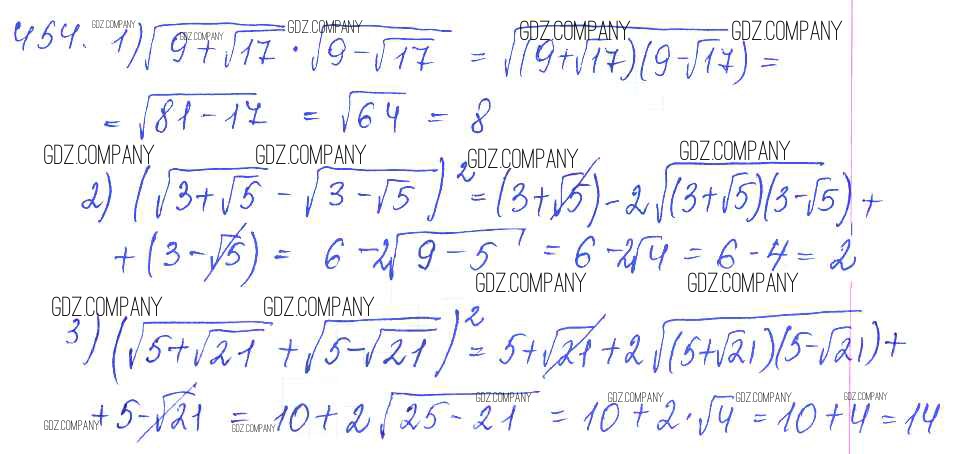 454. 1) √(9+√17) · √(9-√17) = √((9+√17)(9-√17)) =
= √(81-17) = √64 = 8
2) (√(3+√5) - √(3-√5))² = (3+√5) - 2√((3+√5)(3-√5)) +
+ (3-√5) = 6 - 2√(9-5) = 6 - 2√4 = 6 - 4 = 2
3) (√(5+√21) + √(5-√21))² = 5+√21 + 2√((5+√21)(5-√21)) +
+ 5-√21 = 10 + 2√(25-21) = 10 + 2·√4 = 10 + 4 = 14
GDZ.COMPANY GDZ.COMPANY GDZ.COMPANY GDZ.COMPANY GDZ.COMPANY
GDZ.COMPANY GDZ.COMPANY GDZ.COMPANY GDZ.COMPANY
GDZ.COMPANY GDZ.COMPANY GDZ.COMPANY GDZ.COMPANY
GDZ.COMPANY GDZ.COMPANY GDZ.COMPANY GDZ.COMPANY GDZ.COMPANY GDZ.COMPANY